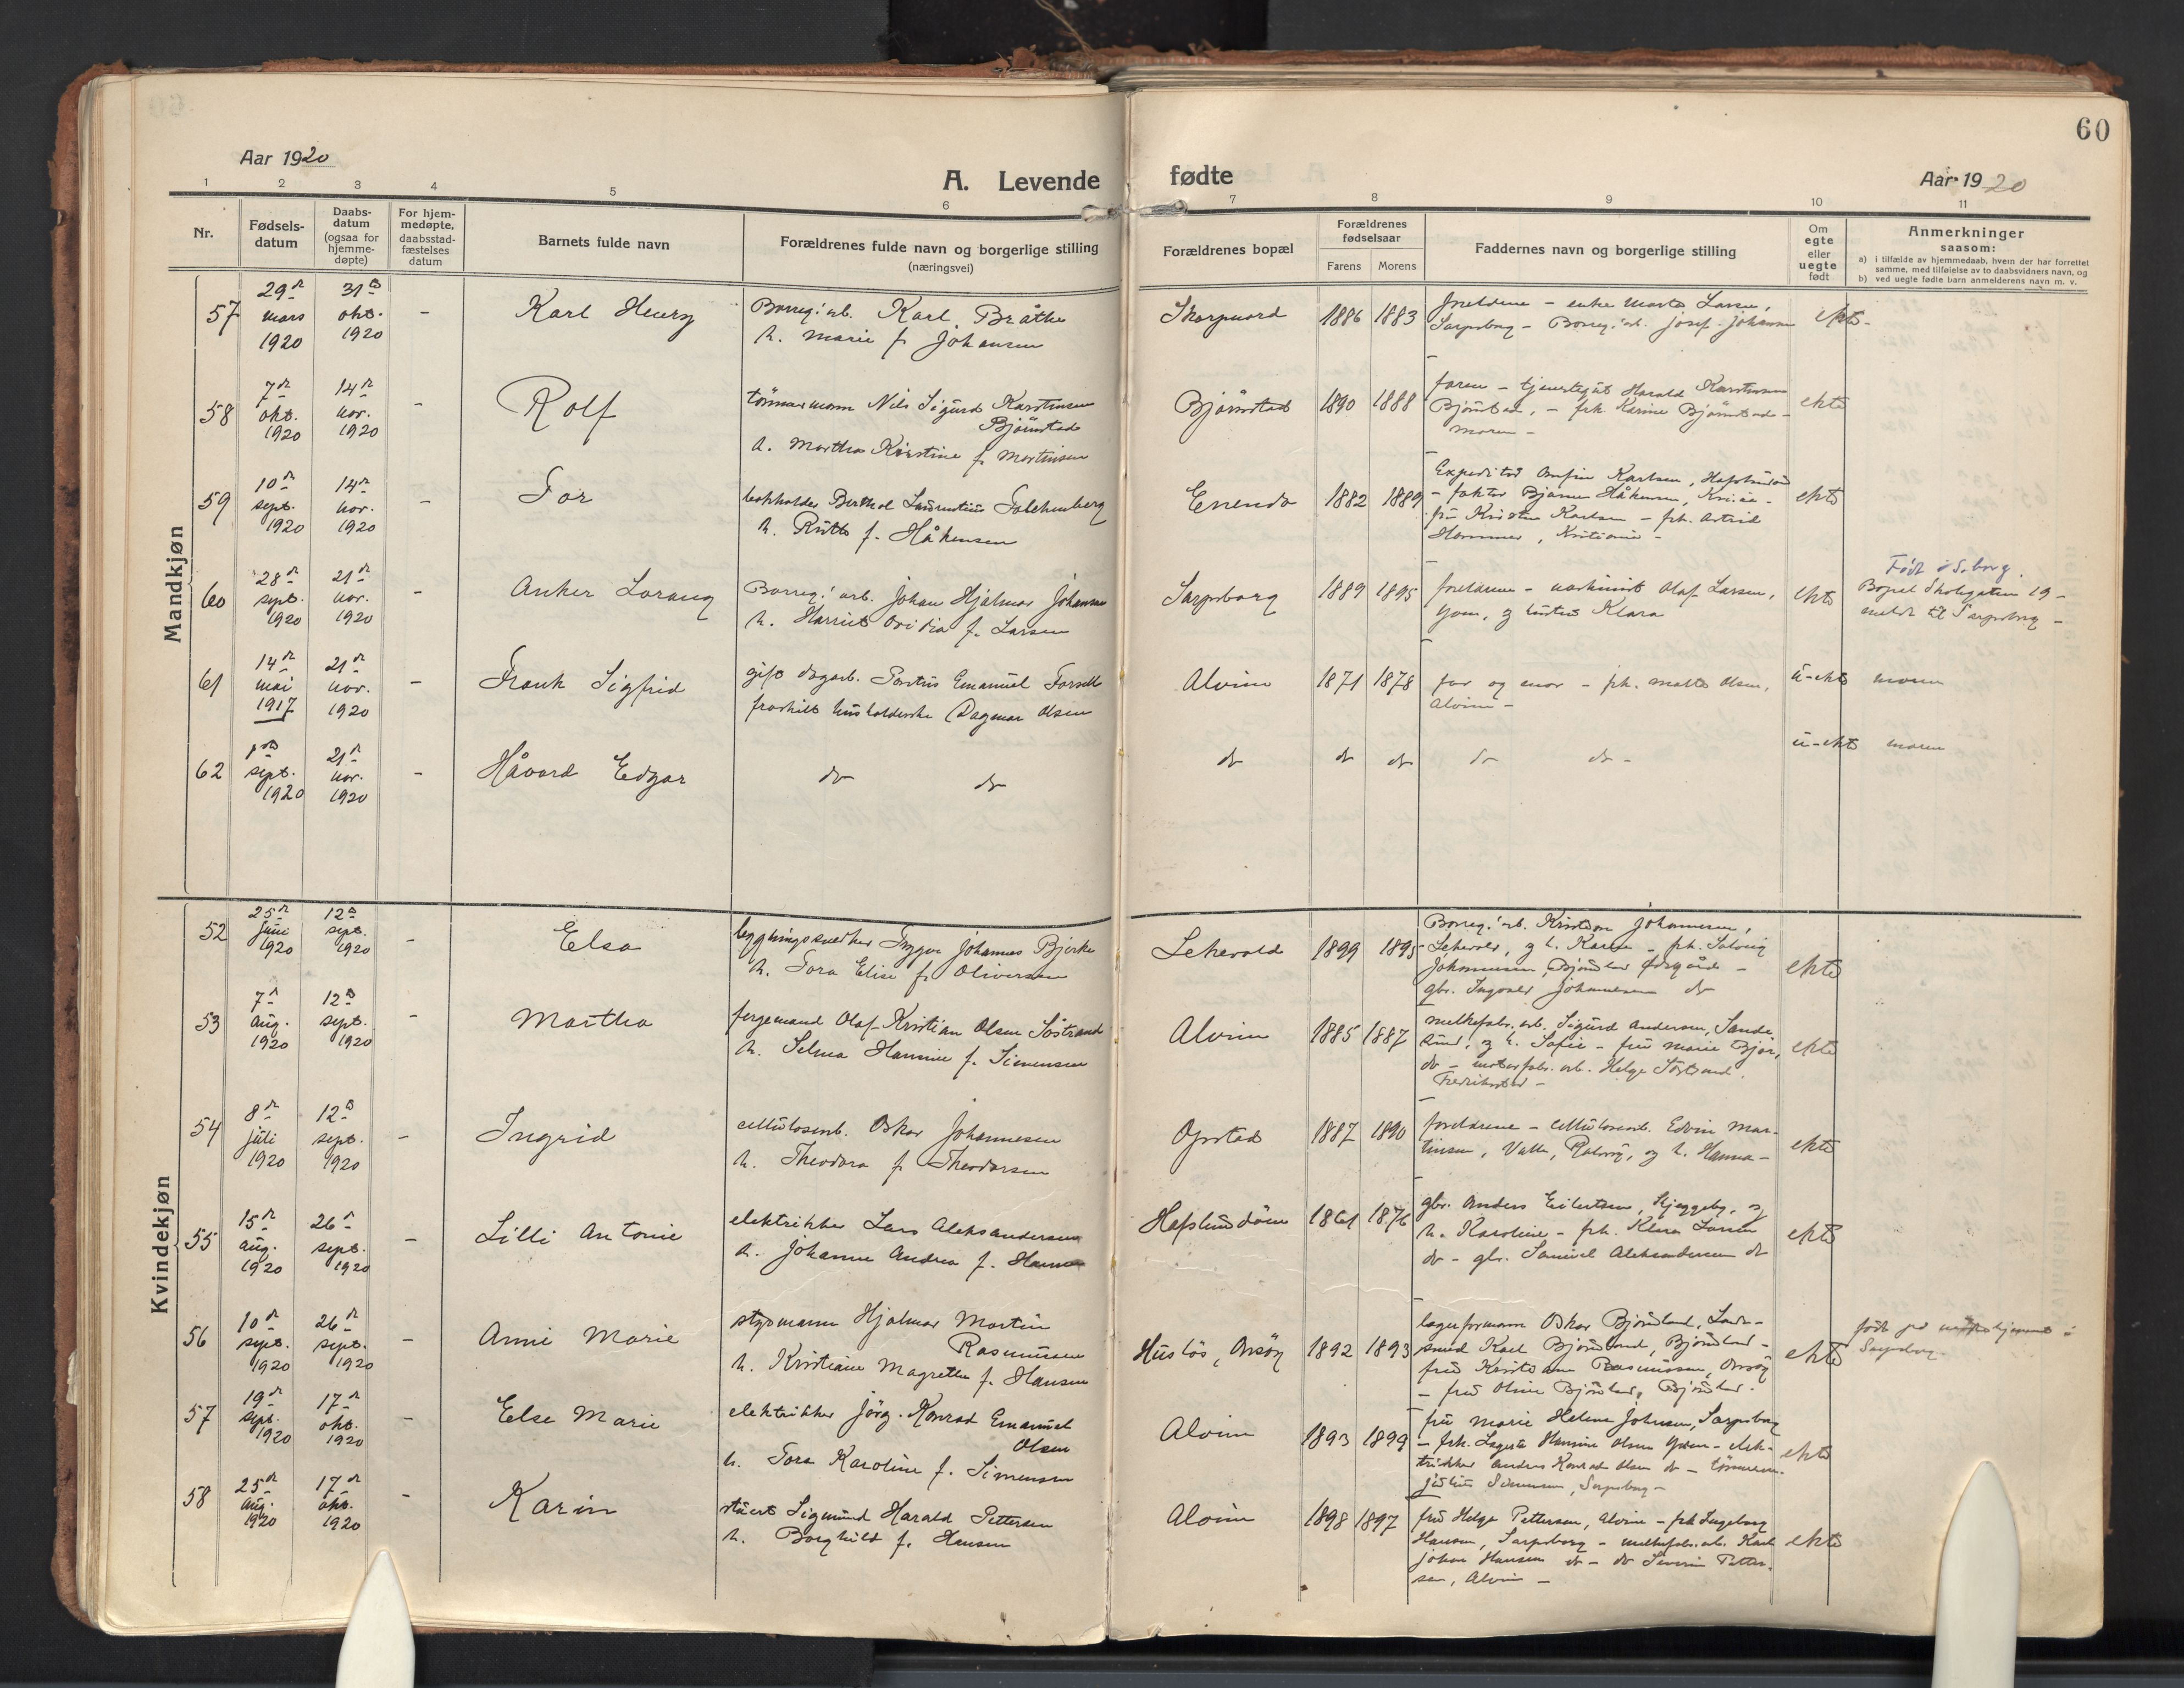 60
Aar 1920
A. Levende fødte
Aar 1920
1 2 3 4 5 6 7 8 9 10 11
Nr.
Fødsels-datum
Daabs-datum (ogsaa for hjemme-døpte)
For hjem-medøpte, daabsstad-fæstelses datum
Barnets fulde navn
Forældrenes fulde navn og borgerlige stilling
(næringsvei)
Forældrenes bopæl
Forældrenes fødselsaar
Farens Morens
Faddernes navn og borgerlige stilling
Om egte eller uegte født
Anmerkninger
saasom:
a) i tilfælde av hjemmedaab, hvem der har forrettet
samme, med tilføielse av to daabsvidners navn, og
b) ved uegte fødte barn anmelderens navn m. v.
Mandkjøn
57 29de mars 1920 31te okt. 1920 - Karl Henry
Borreg. arb. Karl Bråthe
h. Marie f. Johansen
1886 1883
foreldrene - enke Marte Larsen,
Sarpsborg - Borreg. arb. Josef Johansen
ekte
58 7de okt. 1920 14de nov. 1920 - Rolf
tømmermann Nils Sigurd Karstensen
Bjørnstad
h. Martha Kirstine f. Martinsen
Bjørnstad 1890 1888
faren - tjenestegut Harald Karstensen
Bjørnstad, - frk. Karine Bjørnstad -
moren -
ekte
59 10de sept. 1920 14de nov. 1920 - Tor
bokholder Berthol Laurentius Falchenberg
h. Ruth f. Håkensen
Enenda 1882 1889
Expeditør Arnfin Karlsen, Hafslundsø
- faktor Bjarne Håkensen, -
fru Kirsten Karlsen - frk. Astrid
Hammer, Kristiania -
ekte
60 28de sept. 1920 21de nov. 1920 - Anker Lorang
Borreg. arb. Johan Hjalmar Johansen
h. Harriet Ovidia f. Larsen
Sarpsborg 1889 1895
foreldrene - maskinist Olaf Larsen,
Greåker, og hustru Klara
ekte
Født i S.borg.
Bopæl Skolegaten 19 -
meldt til Sarpsborg -
61 14de mai 1917 21de nov. 1920 - Frank Sigfrid
gift dagarb. Pontus Emanuel Forsell
fraskilt husholderske Dagmar Olsen
Alvim 1871 1878
far og mor - frk. Malte Olsen,
Alvim -
u-ekte moren
62 1ste sept. 1920 21de nov. 1920 - Håvard Edgar
do do
do do do do do -
u-ekte moren
Kvindekjøn
52 25de juni 1920 12te sept. 1920 - Elsa
bygningssnedker Trygve Johannes Bjerke
h. Tora Elise f. Oliversen
Lekevold 1899 1895
Borreg. arb. Kristian Johannesen,
Lekevold, og h. Karen - frk. Solveig
Johannesen, Bjørnland Østgård -
gbr. Ingvald Johannesen do
ekte
53 7de aug. 1920 12te sept. 1920 - Martha
fergemand Olaf Kristian Olsen Søstrand
h. Selma Hansine f. Simensen
Alvim 1885 1887
melkefabr. arb. Sigurd Andersen, Sande-
sund, og h. Sofie - fru Marie Bjør,
do - motorfabr. arb. Helge Søstrand
Fredrikstad -
ekte
54 8de juli 1920 12te sept. 1920 - Ingrid
cellulosearb. Oskar Johannesen
h. Theodora f. Theodorsen
Opstad 1887 1890
foreldrene - cellulosearb. Edvin Mar-
tinsen, Valle, Rolvsøy, og h. Hanna -
ekte
55 15de aug. 1920 26de sept. 1920 - Lilli Antonie
elektrikker Lars Aleksandersen
h. Johanne Andrea f. Hansen
Hafslundsøen 1861 1876
gbr. Anders Eilertsen, Skjeggeby, og
h. Karoline - frk. Klara Larsen
do - gbr. Samuel Aleksandersen do
ekte
56 10de sept. 1920 26de sept. 1920 - Anni Marie
styrmann Hjalmar Martin
Rasmussen
h. Kristiane Magrethe f. Hansen
Husløs, Onsøy 1892 1893
lagerformann Oskar Bjørnland, Lande -
smed Karl Bjørnland, Bjørnland -
fru Kristiane Rasmussen, Onsøy
- fru Oline Bjørnland, Bjørnland -
ekte
født på i
Sarpsborg.
57 19de sept. 1920 17de okt. 1920 - Else Marie
elektrikker Jørg. Konrad Emanuel
Olsen
h. Tora Karoline f. Simensen
Alvim 1893 1899
fru Marie Helene Johnsen, Sarpsborg
- frk. Lagerta Hansine Olsen Greåker - elek-
trikker Anders Konrad Olsen do - tømmerm.
Julius Simensen, Sarpsborg -
ekte
58 25de aug. 1920 17de okt. 1920 - Karin
stuert Sigmund Harald Pettersen
h. Borghild f. Hansen
Alvim 1898 1897
fru Helga Pettersen, Alvim - frk Ingeborg
Hansen, Sarpsborg - melkefabr. arb. Karl
Johan Hansen do - do Severin Petter-
sen, Alvim -
ekte